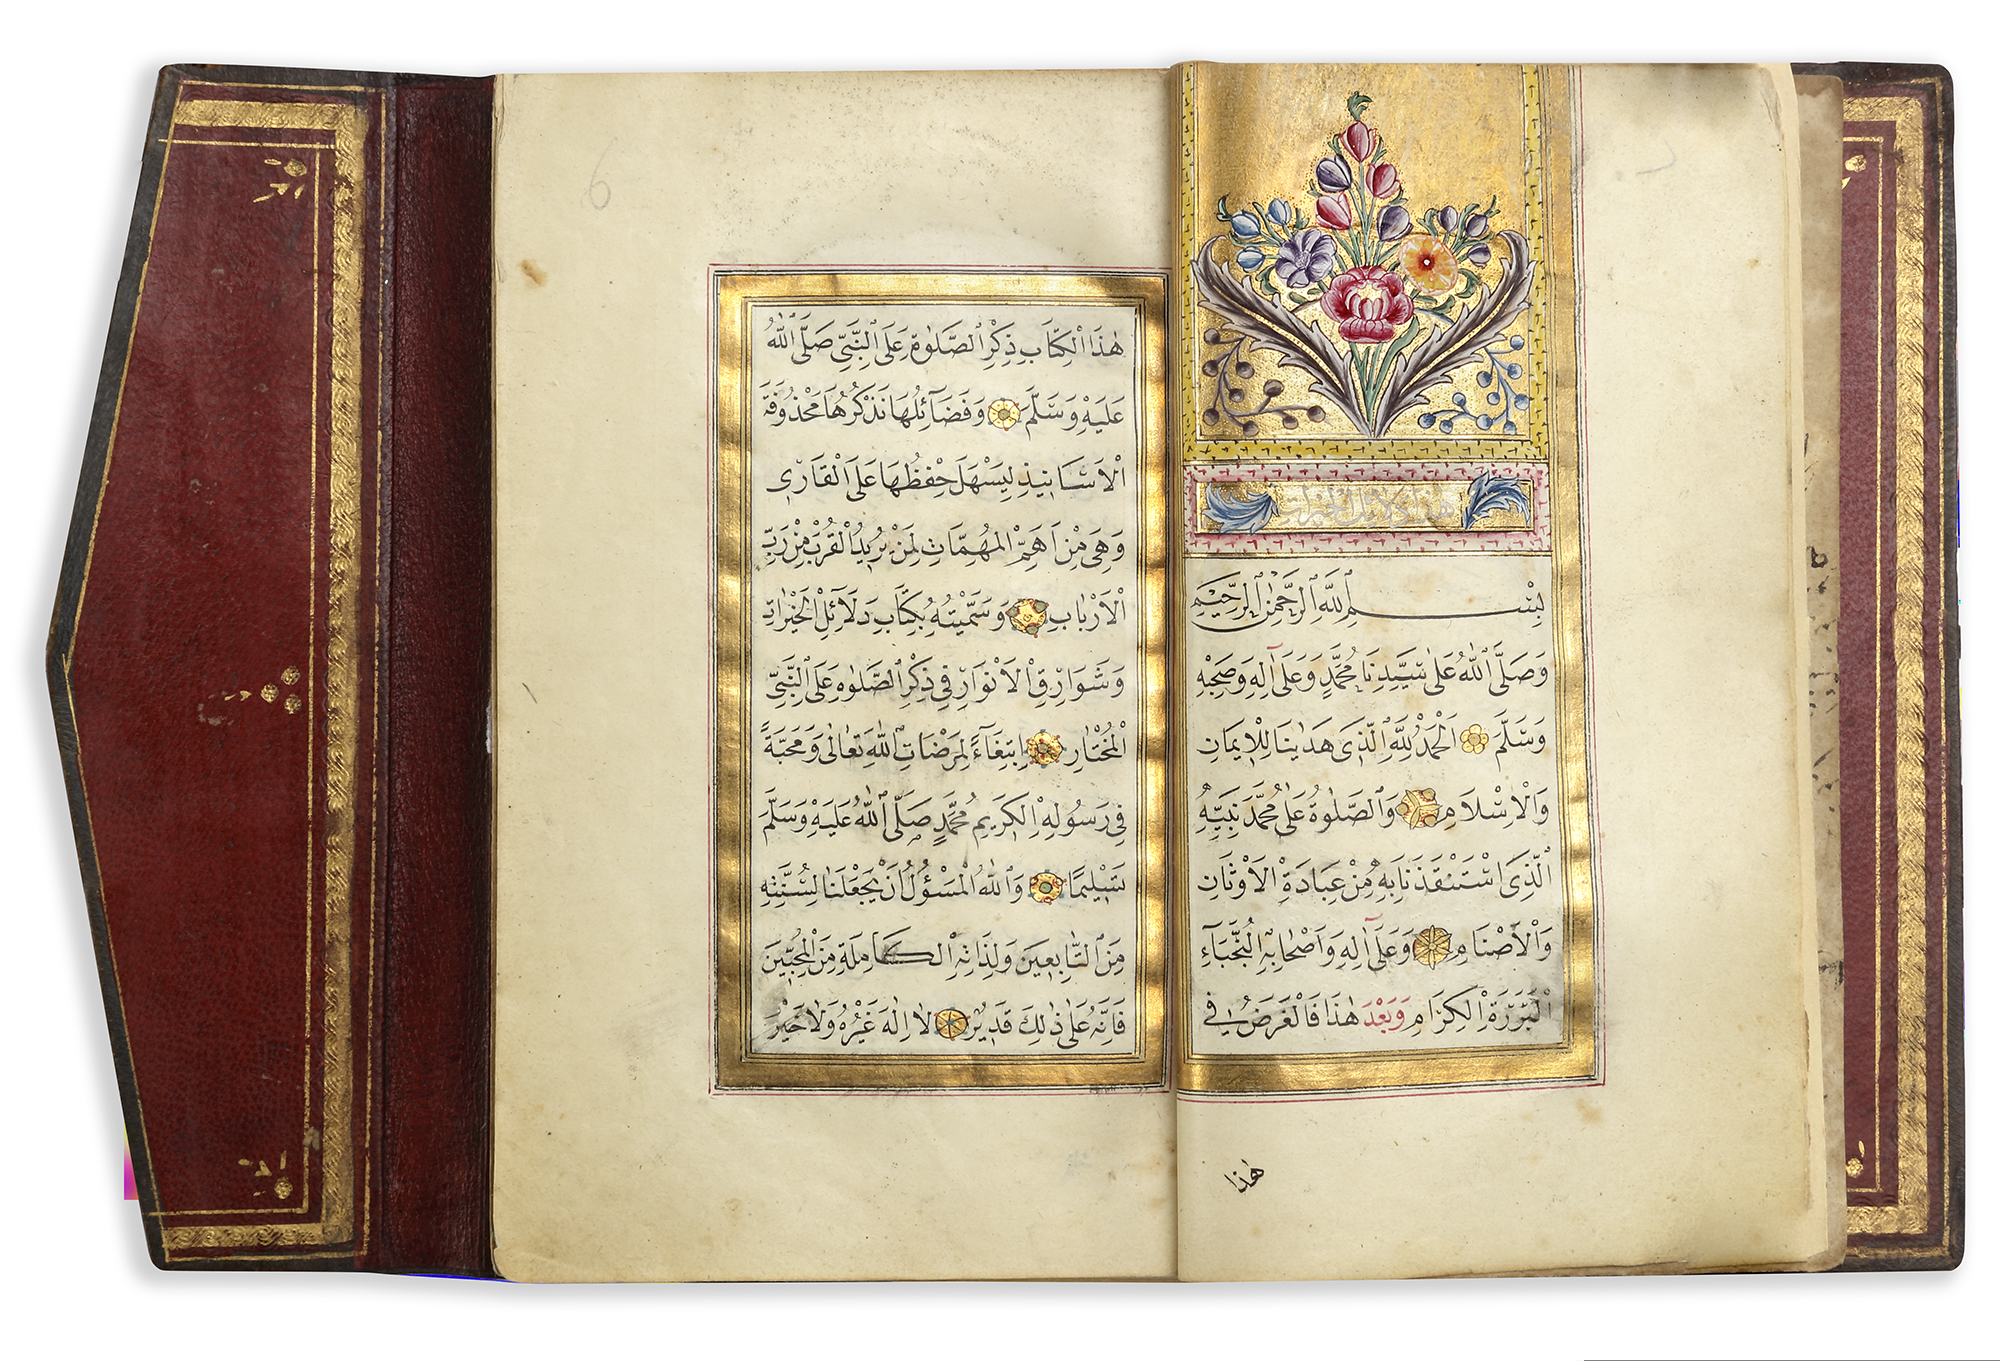 هذا دلائل الخيرات
بِسْمِ اللهِ الرَّحْمٰنِ الرَّحِيمِ
وَصَلَّى اللهُ عَلٰى سَيِّدِنَا مُحَمَّدٍ وَعَلٰى اٰلِهِ وَصَحْبِهِ
وَسَلَّمَ اَلْحَمْدُ لِلّٰهِ الَّذِى هَدٰينَا لِلْاِيمَانِ
وَالْاِسْلَامِ وَالصَّلٰوةُ عَلٰى مُحَمَّدٍ نَبِيِّهِ
الَّذِى اسْتَنْقَذَنَا بِهِ مِنْ عِبَادَةِ الْاَوْثَانِ
وَالْاَصْنَامِ وَعَلٰى اٰلِهِ وَاَصْحَابِهِ النُّجَبَاءِ
الْبَرَرَةِ الْكِرَامِ وَبَعْدَ هٰذَا فَالْغَرَضُ فِي
هٰذا
6
هٰذَا الْكِتَابِ ذِكْرُ الصَّلٰوةِ عَلَى النَّبِيِّ صَلَّى اللهُ
عَلَيْهِ وَسَلَّمَ وَفَضَآئِلُهَا نَذْكُرُهَا مَحْذُوفَةَ
الْاَسَانِيدِ لِيَسْهُلَ حِفْظُهَا عَلَى الْقَارِى
وَهِىَ مِنْ اَهَمِّ الْمُهِمَّاتِ لِمَنْ يُرِيدُ الْقُرْبَ مِنْ رَبِّ
الْاَرْبَابِ وَسَمَّيْتُهُ بِكِتَابِ دَلَآئِلِ الْخَيْرَاتِ
وَشَوَارِقِ الْاَنْوَارِ فِي ذِكْرِ الصَّلٰوةِ عَلَى النَّبِيِّ
الْمُخْتَارِ اِبْتِغَآءً لِمَرْضَاتِ اللهِ تَعَالٰى وَمَحَبَّةً
فِي رَسُولِهِ الْكَرِيمِ مُحَمَّدٍ صَلَّى اللهُ عَلَيْهِ وَسَلَّمَ
تَسْلِيمًا وَاللهُ الْمَسْؤُلُ اَنْ يَجْعَلَنَا لِسُنَّتِهِ
مِنَ التَّابِعِينَ وَلِذَاتِهِ الْكَامِلَةِ مِنَ الْمُحِبِّينَ
فَاِنَّهُ عَلٰى ذٰلِكَ قَدِيرٌ لَا اِلٰهَ غَيْرُهُ وَلَا خَيْرَ